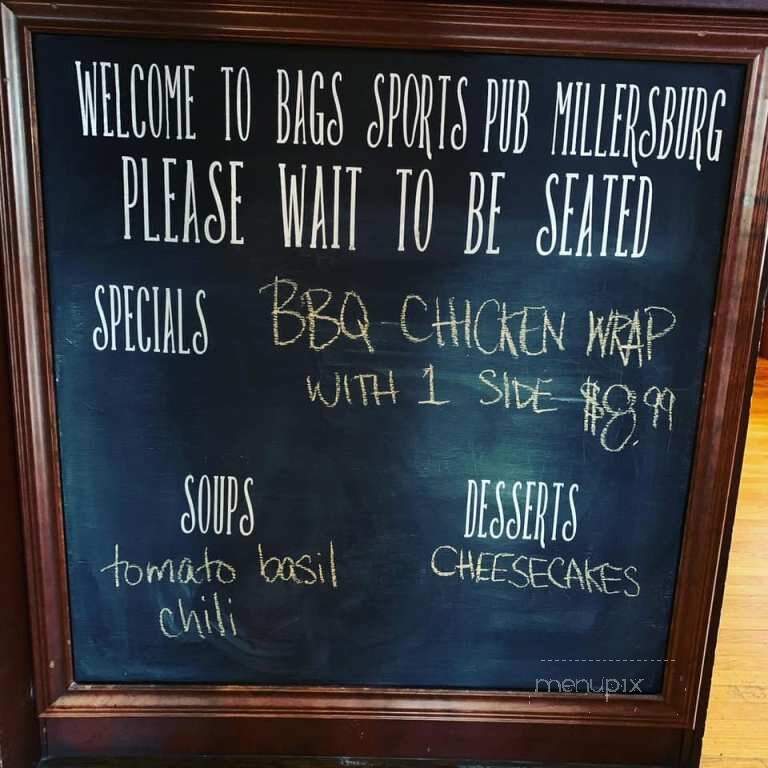 WELCOME TO BAGS SPORTS PUB MILLERSBURG
PLEASE WAIT TO BE SEATED
SPECIALS BBQ CHICKEN WRAP
WITH 1 SIDE $8.99
SOUPS
tomato basil
chili
DESSERTS
CHEESECAKES
menupix